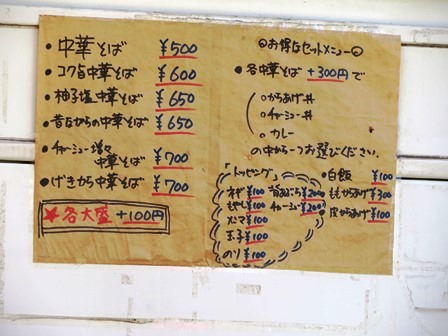 ・中華そば ¥500
・コク旨中華そば ¥600
・柚子塩中華そば ¥650
・昔ながらの中華そば ¥650
・チャーシュー増々
中華そば ¥700
・げきから中華そば ¥700
★各大盛 +100円
◎お得なセットメニュー◎
・各中華そば +300円で
○からあげ丼
○チャーシュー丼
○カレー
の中から一つお選びください。
「トッピング」
ネギ ¥100
もやし ¥100
メンマ ¥100
玉子 ¥100
のり ¥100
¥200
チャーシュー ¥200
・白飯 ¥100
・ももからあげ ¥300
・皮からあげ ¥100